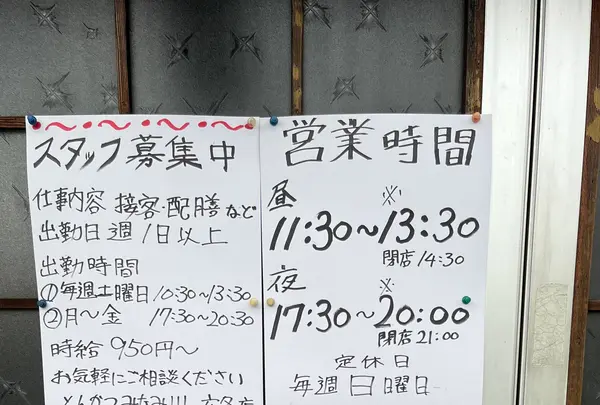 スタッフ募集中
仕事内容 接客・配膳など
出勤日 週1日以上
出勤時間
①毎週土曜日10:30~13:30
②月~金 17:30~20:30
時給 950円~
お気軽にご相談ください
営業時間
昼 ※
11:30~13:30
閉店14:30
夜 ※
17:30~20:00
閉店21:00
定休日
毎週日曜日